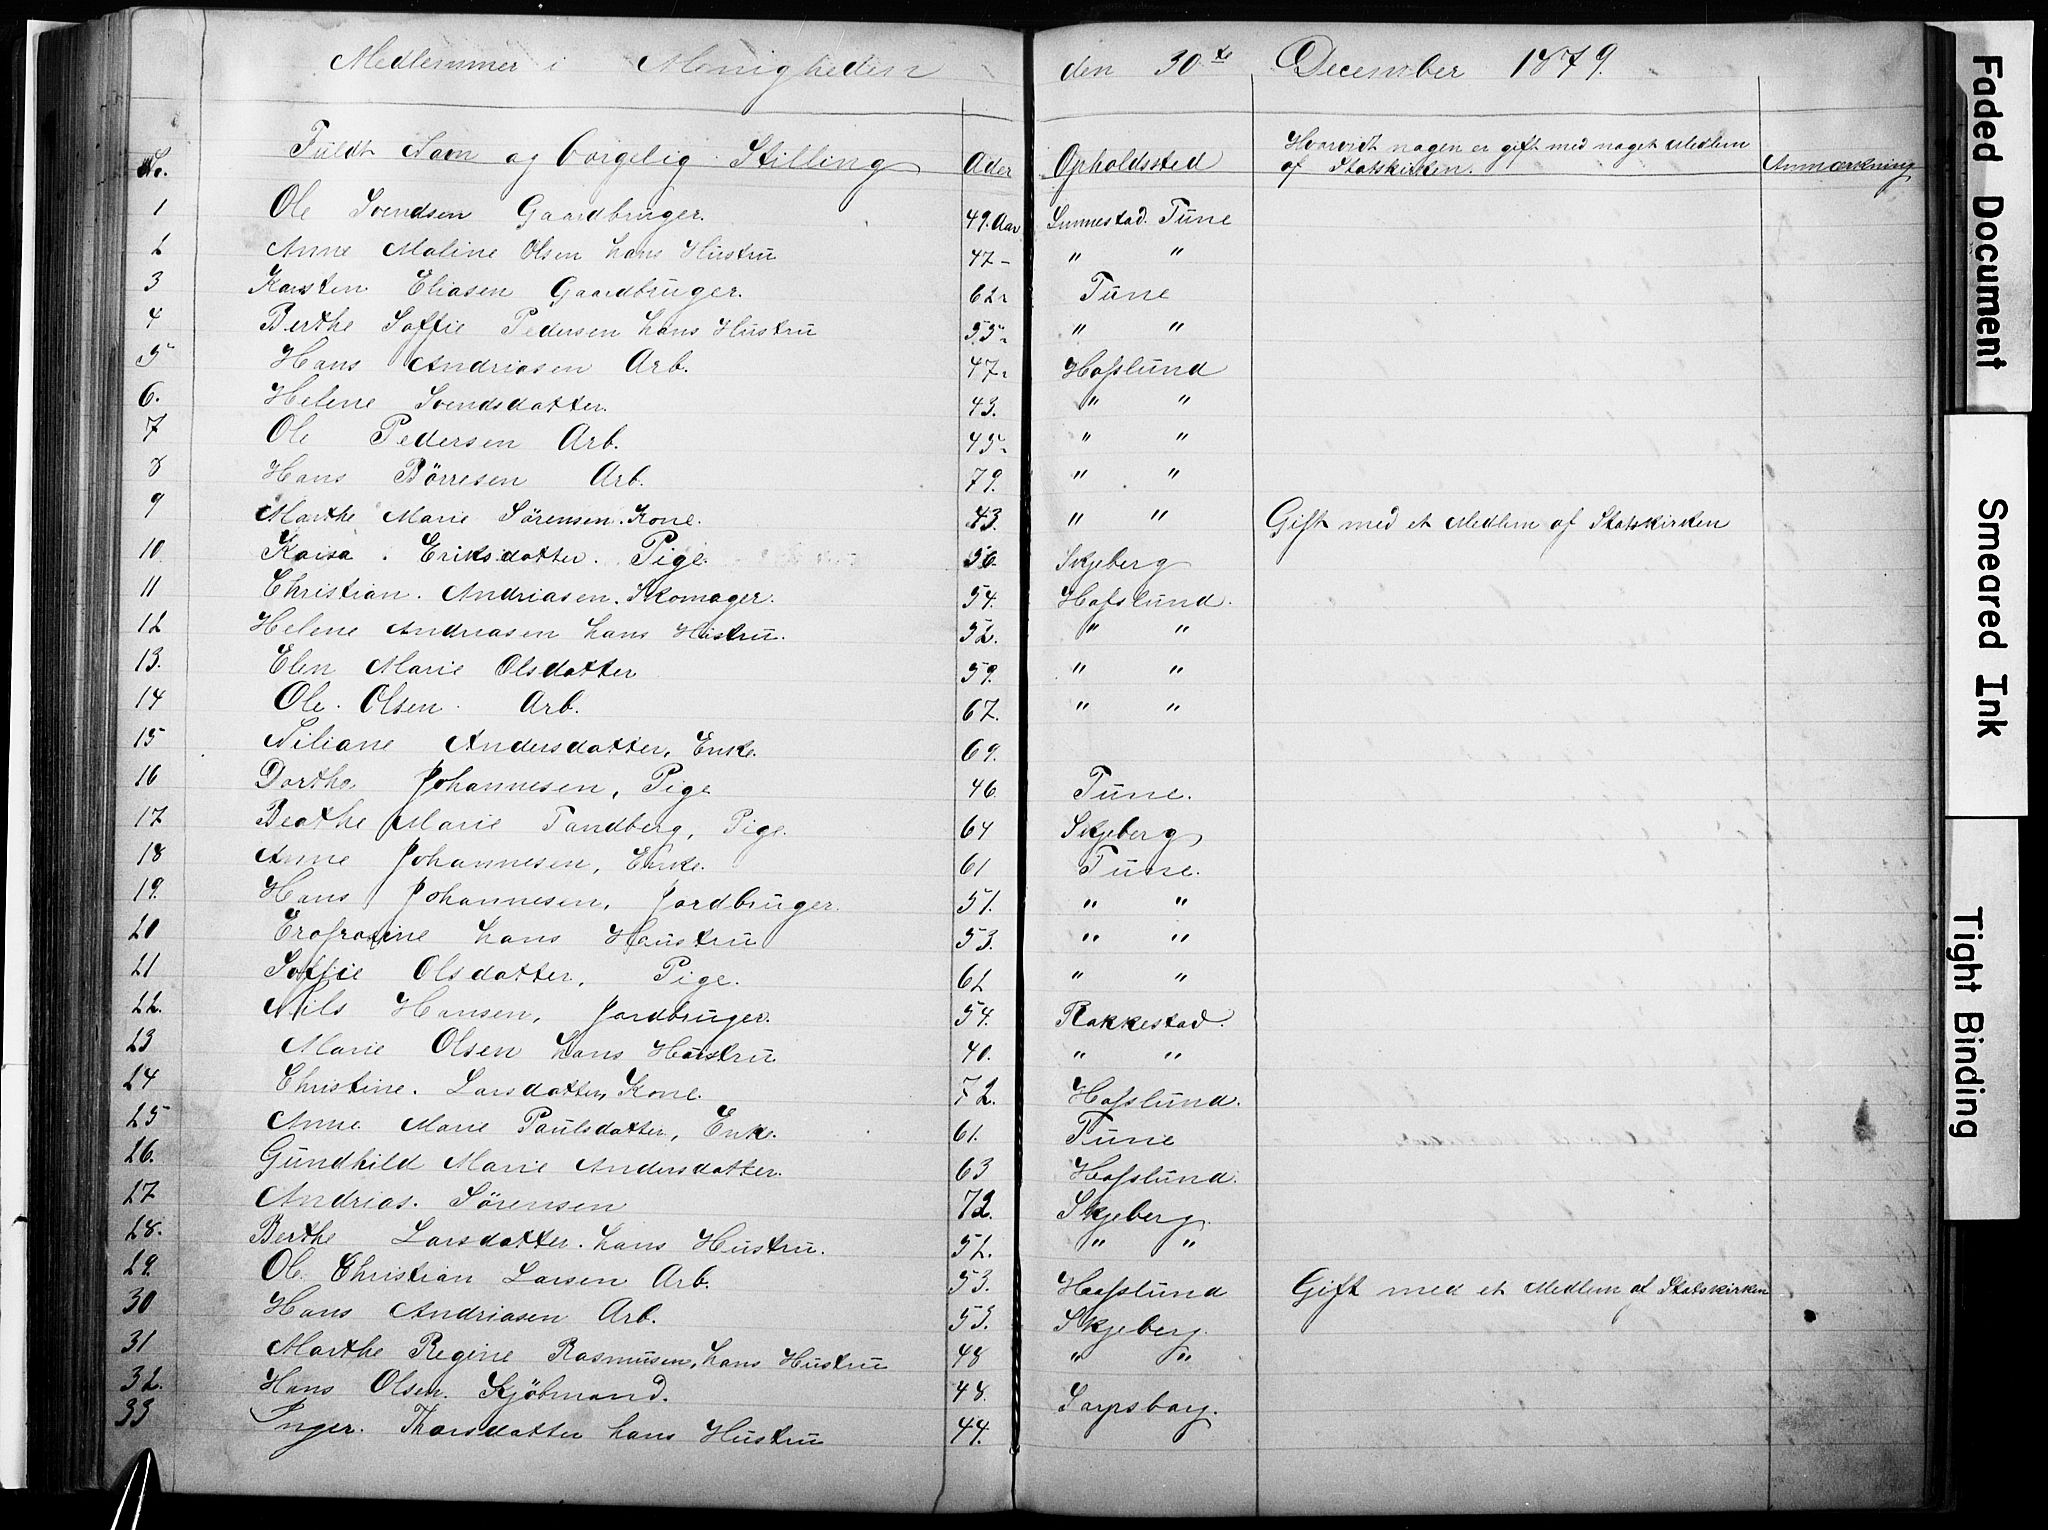 Medlemmer i Menigheden den 30te December 1879.
No. Fuldt Navn og borgelig Stilling Alder Opholdssted Hvorvidt nogen er gift med noget Medlem af Statskirken. Anmærkning
1 Ole Svendsen Gaardbruger. 49. Aar Tune
2 Anne Maline Olsen hans Hustru 47- " "
3 Karsten Eliasen Gaardbruger. 62 Tune
4 Berthe Soffie Pedersen hans Hustru 55 " "
5 Hans Andriasen Arb. 47 Hafslund
6. Helene Svendsdatter. 43. " "
7 Ole Pedersen Arb. 45 " "
8 Hans Børresen Arb. 79. " "
9 Marthe Marie Sørensen. Kone. 43. " " Gift med et Medlem af Statskirken
10. Kaisa. Eriksdatter. Pige. 56. Skjeberg
11 Christian. Andriasen. Skomager. 54. Hafslund.
12 Helene Andriasen hans Hustru. 52. " "
13. Elen Marie Olsdatter 59. " "
14 Ole. Olsen. Arb. 67. " "
15 Andersdatter, Enke. 69.
16 Dorthe Johannesen, Pige 46. Tune.
17 Beathe Marie Tandberg, Pige. 64 Skjeberg
18 Anne Johannesen, Enke. 61 Tune.
19. Hans Johannesen, Jordbruger. 51. " "
20 hans Hustru 53. " "
21 Soffie Olsdatter, Pige. 62 " "
22. Nils Hansen, Jordbruger. 54. Rakkestad.
23 Marie Olsen hans Hustru 40. " "
24 Christine. Larsdatter, Kone. 72. Hafslund.
25 Anne Marie Paulsdatter, Enke. 61. Tune
26. Gundhild Marie Andersdatter. 63 Hafslund.
27 Andrias. Sørensen 72. Skjeberg.
28. Berthe Larsdatter. hans Hustru. 52. " "
29. Ole Christian Larsen Arb. 53. Hafslund Gift med et Medlem af Statskirken
30 Hans Andriasen Arb. 53. Skjeberg.
31 Marthe Regine Rasmusen, hans Hustru 48 " "
32. Hans Olsen. Kjøbmand. 48. Sarpsborg.
33 Inger. Thorsdatter hans Hustru 44.
Faded Document
Smeared Ink
Tight Binding